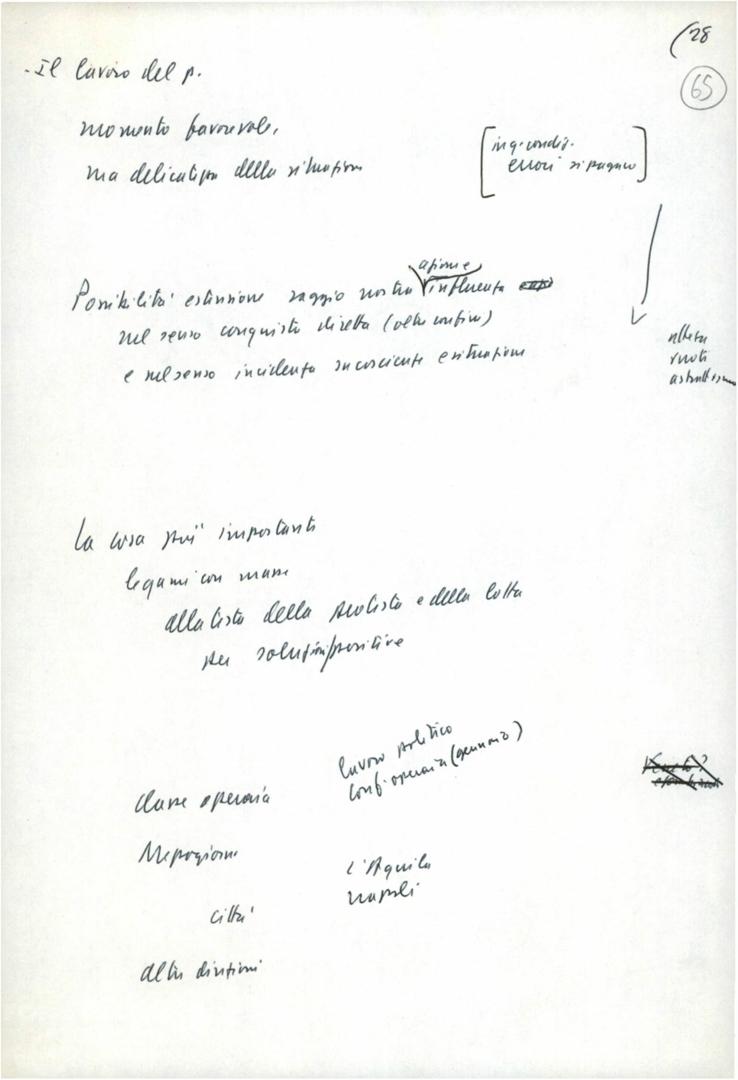 (28
65
- Il lavoro del p.
momento favorevole,
ma delicatezza della situazione
[in q. condiz.
errori si pagano]
Possibilità estensione raggio nostra azione e influenza
nel senso conquista diretta (oltre confini)
e nel senso incidenza su coscienze e situazione
La cosa più importante
legami con masse
alla testa della protesta e della lotta
per soluzioni positive
lavoro politico
conf. operaia (gennaio)
classe operaia
Mezzogiorno
L'Aquila
Napoli
città
altre direzioni